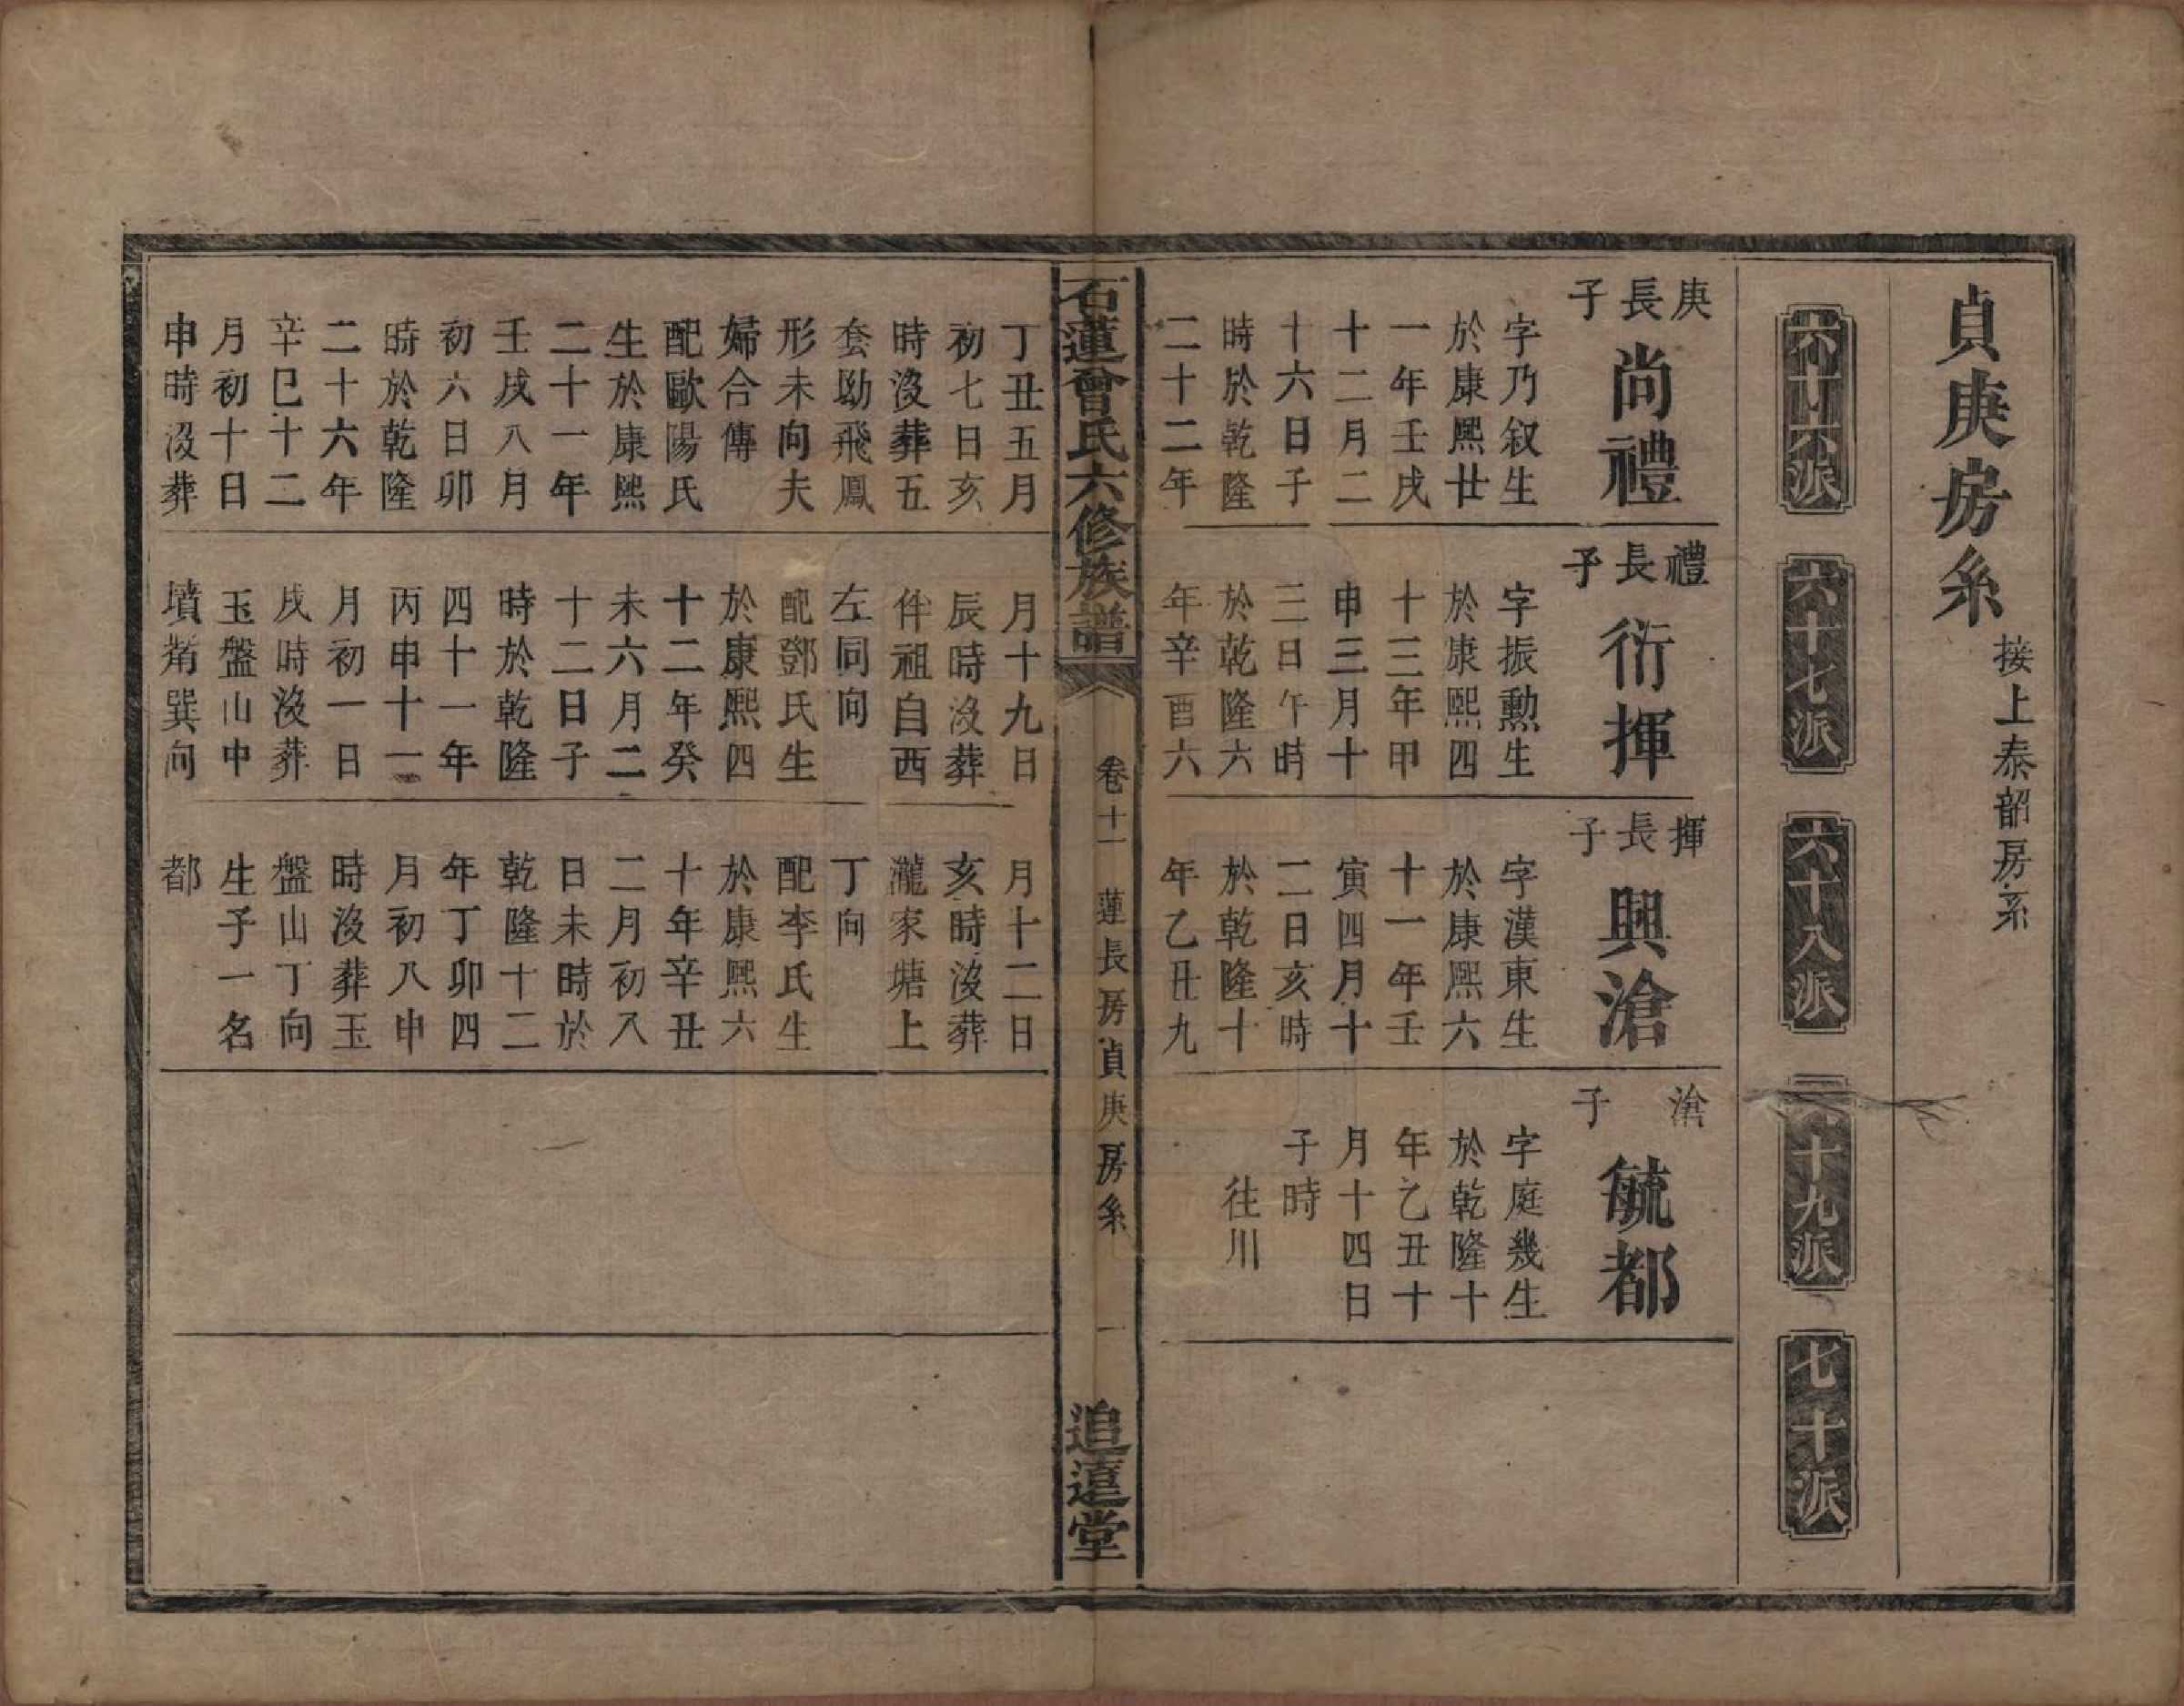 貞庚房系 接上泰韶房系
六十六派
六十七派
六十八派
十九派
七十派
庚長子
尚禮
字乃叙生
於康熙廿
一年壬戌
十二月二
十六日子
時於乾隆
二十二年
禮長子
衍揮
字振勳生
於康熙四
十三年甲
申三月十
三日午時
於乾隆六
年辛酉六
揮長子
興滄
字漢東生
於康熙六
十一年壬
寅四月十
二日亥時
於乾隆十
年乙丑九
滄子
毓都
字庭幾生
於乾隆十
年乙丑十
月十四日
子時
往川
石蓮曾氏六修族譜
卷十一 蓮長房貞庚房系 一
追遠堂
丁丑五月
初七日亥
時沒葬五
套坳飛鳳
形未向夫
婦合傳
配歐陽氏
生於康熙
二十一年
壬戌八月
初六日卯
時於乾隆
二十六年
辛巳十二
月初十日
申時沒葬
月十九日
辰時沒葬
伴祖自西
左同向
配鄧氏生
於康熙四
十二年癸
未六月二
十二日子
時於乾隆
四十一年
丙申十一
月初一日
戌時沒葬
玉盤山中
墳觜巽向
月十二日
亥時沒葬
瀧家塘上
丁向
配李氏生
於康熙六
十年辛丑
二月初八
日未時於
乾隆十二
年丁卯四
月初八申
時沒葬玉
盤山丁向
生子一名
都